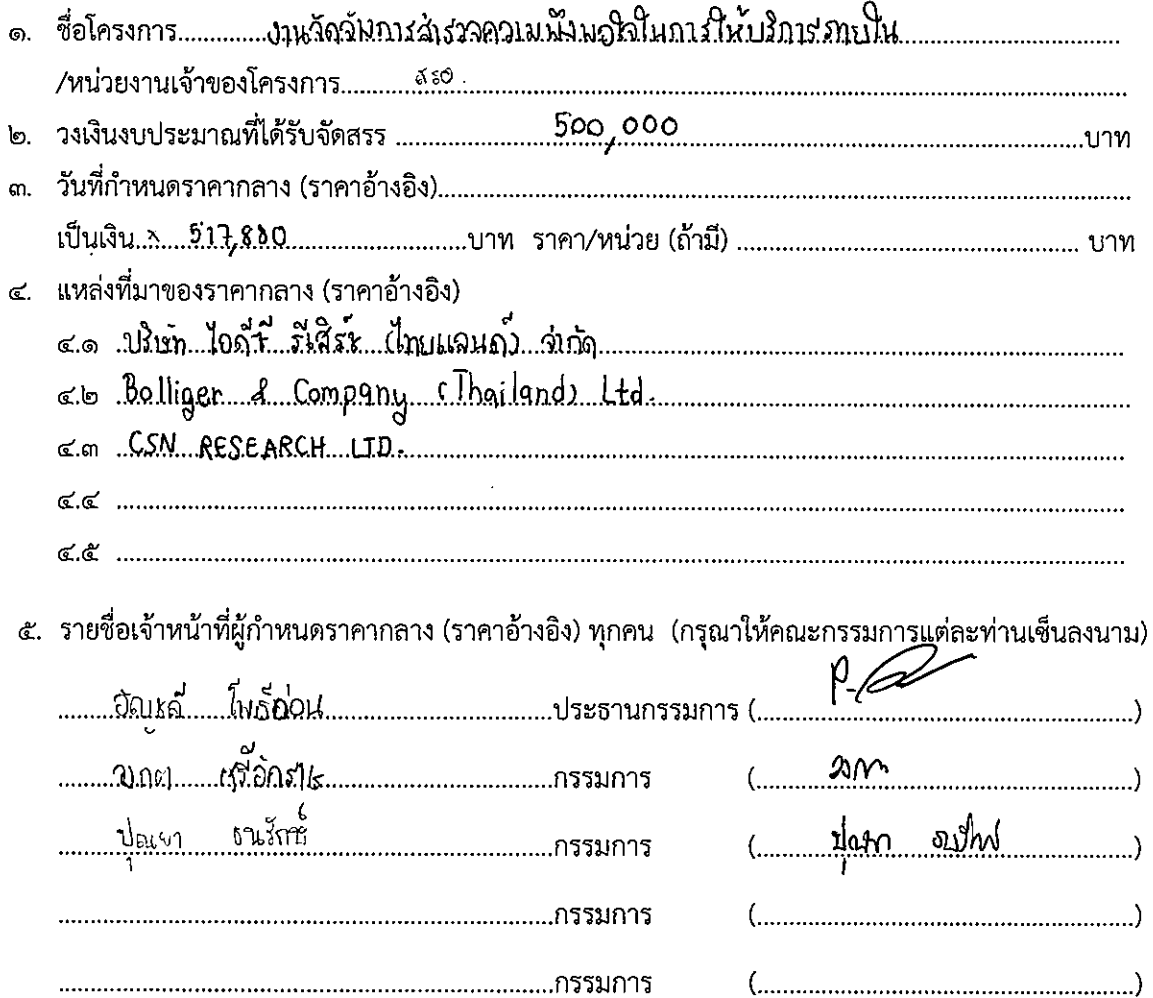 ๑. ชื่อโครงการ..............งานวัดจ้างการสำรวจความพึงพอใจในการให้บริการภายใน
/หน่วยงานเจ้าของโครงการ............สรอ.
๒. วงเงินงบประมาณที่ได้รับจัดสรร ............500,000............บาท
๓. วันที่กำหนดราคากลาง (ราคาอ้างอิง)............
เป็นเงิน............บาท ราคา/หน่วย (ถ้ามี) ............ บาท
๔. แหล่งที่มาของราคากลาง (ราคาอ้างอิง)
๔.๑ บริษัท ไอดีซี รีเสิร์ช (ไทยแลนด์) จำกัด
๔.๒ Bolliger & Company (Thailand) Ltd.
๔.๓ CSN RESEARCH LTD.
๔.๔ ............
๔.๕ ............
๕. รายชื่อเจ้าหน้าที่ผู้กำหนดราคากลาง (ราคาอ้างอิง) ทุกคน (กรุณาให้คณะกรรมการแต่ละท่านเซ็นลงนาม)
อัญชลี โพธิ์อ่อน............ประธานกรรมการ (............)
............กรรมการ (............)
ปุณยา ธนรักษ์............กรรมการ (............)
............กรรมการ (............)
............กรรมการ (............)